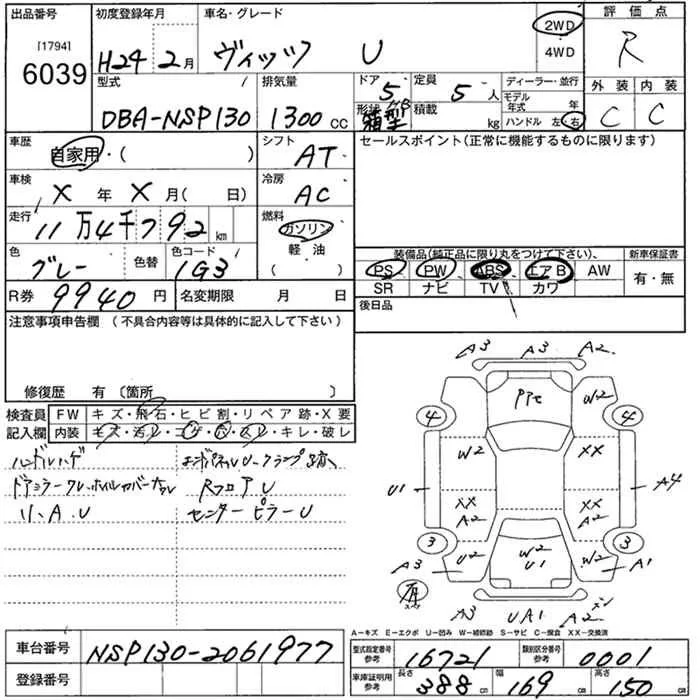 出品番号 初度登録年月 車名・グレード 2WD 評価点
[1794] H24 2月 ヴィッツ U 4WD R
6039
型式 排気量 ドア 定員 ディーラー・並行 外装 内装
DBA-NSP130 1300cc 5 5人 モデル年式 年 C C
形状 箱型 積載 kg ハンドル 左・右
車歴 自家用・( ) シフト AT セールスポイント(正常に機能するものに限ります)
車検 X年X月( 日) 冷房 AC
走行 11万4千792km 燃料 ガソリン
軽油
色 グレー 色替 色コード 1G3
装備品(純正品に限り丸をつけて下さい)、 新車保証書
PS PW ABS エアB AW 有・無
SR ナビ TV カワ
R券 9940円 名変期限 月 日 後日品
注意事項申告欄 (不具合内容等は具体的に記入して下さい)
修復歴 有 〔箇所 〕
検査員 FW キズ・飛石・ヒビ割・リペア跡・X要
記入欄 内装 キズ・汚レ・コゲ・穴・スレ・キレ・破レ
ハンドルハゲ
ドアミラーワレ・ホイルカバー
Rフロア U
リ、A、U センターピラーU
A3 A3 A2
PTC W2
4 4
W2 XX
U1 A4
XX XX
A2 A2
3 3
A3 U2 W2 U1 W2 A1
有
A3 UA1 A2
A-キズ E-エクボ U-凹み W-補修跡 S-サビ C-腐食 XX-交換済
車台番号 NSP130-2061977
登録番号
型式指定番号 参考 16721 類別区分番号 参考 0001
車庫証明用 参考 長さ 388cm 幅 169cm 高さ 150cm